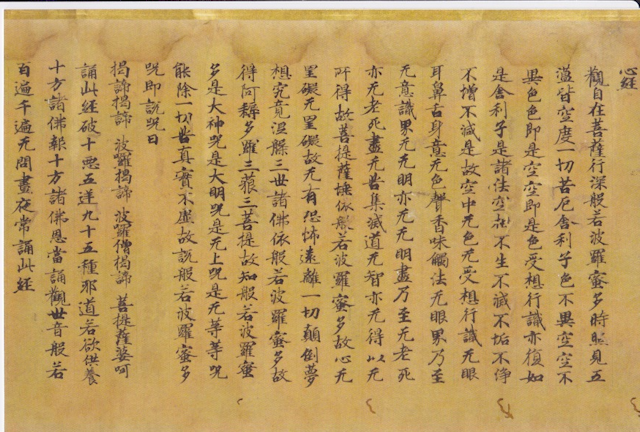 心経
觀自在菩薩行深般若波羅蜜多時照見五
蕴皆空度一切苦厄舍利子色不異空空不
異色色即是空空即是色受想行識亦復如
是舍利子是諸法空相不生不滅不垢不淨
不增不減是故空中无色无受想行識无眼
耳鼻舌身意无色聲香味觸法无眼界乃至
无意識界无无明亦无无明盡乃至无老死
亦无老死盡无苦集滅道无智亦无得以无
所得故菩提薩埵依般若波羅蜜多故心无
罣礙无罣礙故无有恐怖遠離一切顛倒夢
想究竟涅槃三世諸佛依般若波羅蜜多故
得阿耨多羅三藐三菩提故知般若波羅蜜
多是大神呪是大明呪是无上呪是无等等呪
能除一切苦真實不虛故說般若波羅蜜多
呪即說呪曰
揭諦揭諦 波羅揭諦 波羅僧揭諦 菩提薩婆呵
誦此經破十惡五逆九十五種邪道若欲供養
十方諸佛報十方諸佛恩當誦觀世音般若
百遍千遍无間晝夜常誦此經